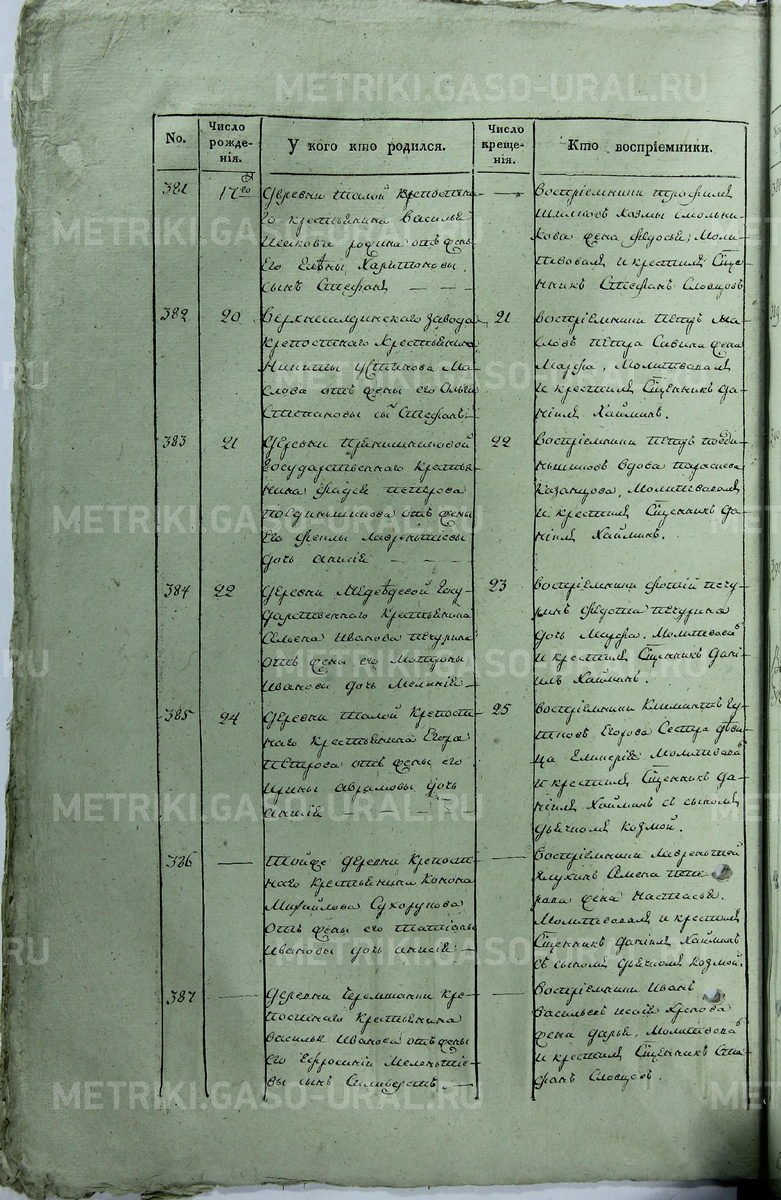 METRIKI.GASO-URAL.RU
No.
Число рожде-нія.
У кого кто родился.
Число креще-нія.
Кто воспріемники.
381
17
Деревни Талой крепостна-
го крестьянина Василья
его Елены Харитоновы
сынъ Стефанъ — —
—
Козмы Смольни-
кова жена Федосья, Моли-
твовалъ и крестилъ Сщен-
никъ Стефанъ Словцовъ
382
20
Верхнесалдинскаго завода
крепостнаго крестьянина
Никиты Устинова Ма-
слова отъ жены его Ольги
Степановы сынъ Стефанъ
21
Воспріемники Петръ Ма-
словъ Петра Савина жена
Марфа, Молитвовалъ
и крестилъ Сщенникъ Да-
ніилъ Хайминъ.
383
21
Деревни
Государственнаго крестья-
нина Фадея Петрова
отъ жены
его Феклы Лаврентьевы
дочь Анисія — —
22
Воспріемники Петръ
вдова Параскева
Казанцова, Молитвовалъ
и крестилъ Сщенникъ Да-
ніилъ Хайминъ.
384
22
Деревни Медведевой Госу-
дарственнаго крестьянина
Ивана Печурина
отъ жены его Матроны
Иванова дочь Меланія —
23
Воспріемники Фотій Печу-
ринъ Федота Печурина
дочь Марфа. Молитвовалъ
и крестилъ Сщенникъ Дані-
илъ Хайминъ.
385
24
Деревни Талой крепост-
наго крестьянина Егора
Петрова отъ жены его
Ирины Аврамовы дочь
Анисія — —
25
Воспріемники Климантъ
Егорова Сестра деви-
ца Гликерія Молитвовалъ
и крестилъ Сщенникъ Да-
ніилъ Хайминъ съ сыномъ
дьячкомъ Козмой.
386
—
Тойже деревни крепост-
наго крестьянина Конона
Михайлова Сухорукова
отъ жены его Татіаны
Ивановы дочь Анисія —
—
Воспріемники Лаврентей
жена Настасья.
Молитвовалъ и крестилъ
Сщенникъ Даніилъ Хайминъ
съ сыномъ дьячкомъ Козмой.
387
—
Деревни Черемшанки кре-
постнаго крестьянина
Василья Иванова отъ жены
его Ефросиніи Мелентье-
вы сынъ Силиверстъ —
—
Воспріемники Иванъ
Васильевъ
жена Дарья, Молитвовалъ
и крестилъ Сщенникъ Сте-
фанъ Словцовъ.